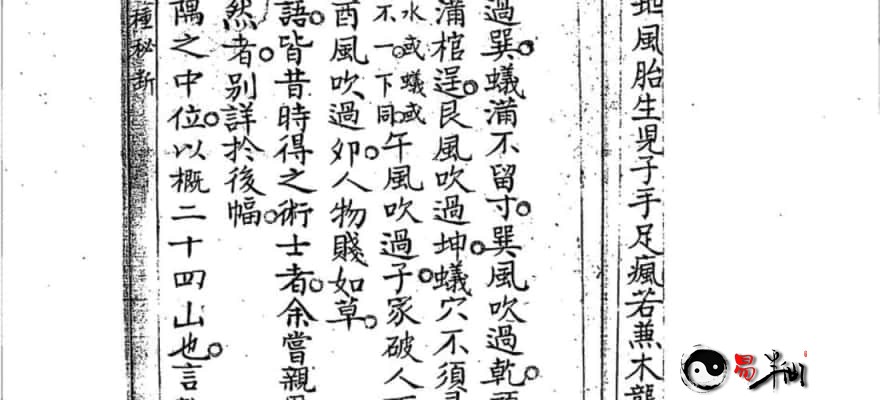 地風胎生児子手足瘋若蕉木龍
過巽。蟻滿不留寸。巽風吹過乾。
滿棺逞。艮風吹過坤。蟻穴不須
水。或蟻或
不一。下同。午風吹過子。家破人
酉風吹過夘。人物賤如草。
語。皆昔時得之術士者。余嘗親
然者。别詳於後幅。
隅之中位。以概二十四山也。言
種秘断
易半仙